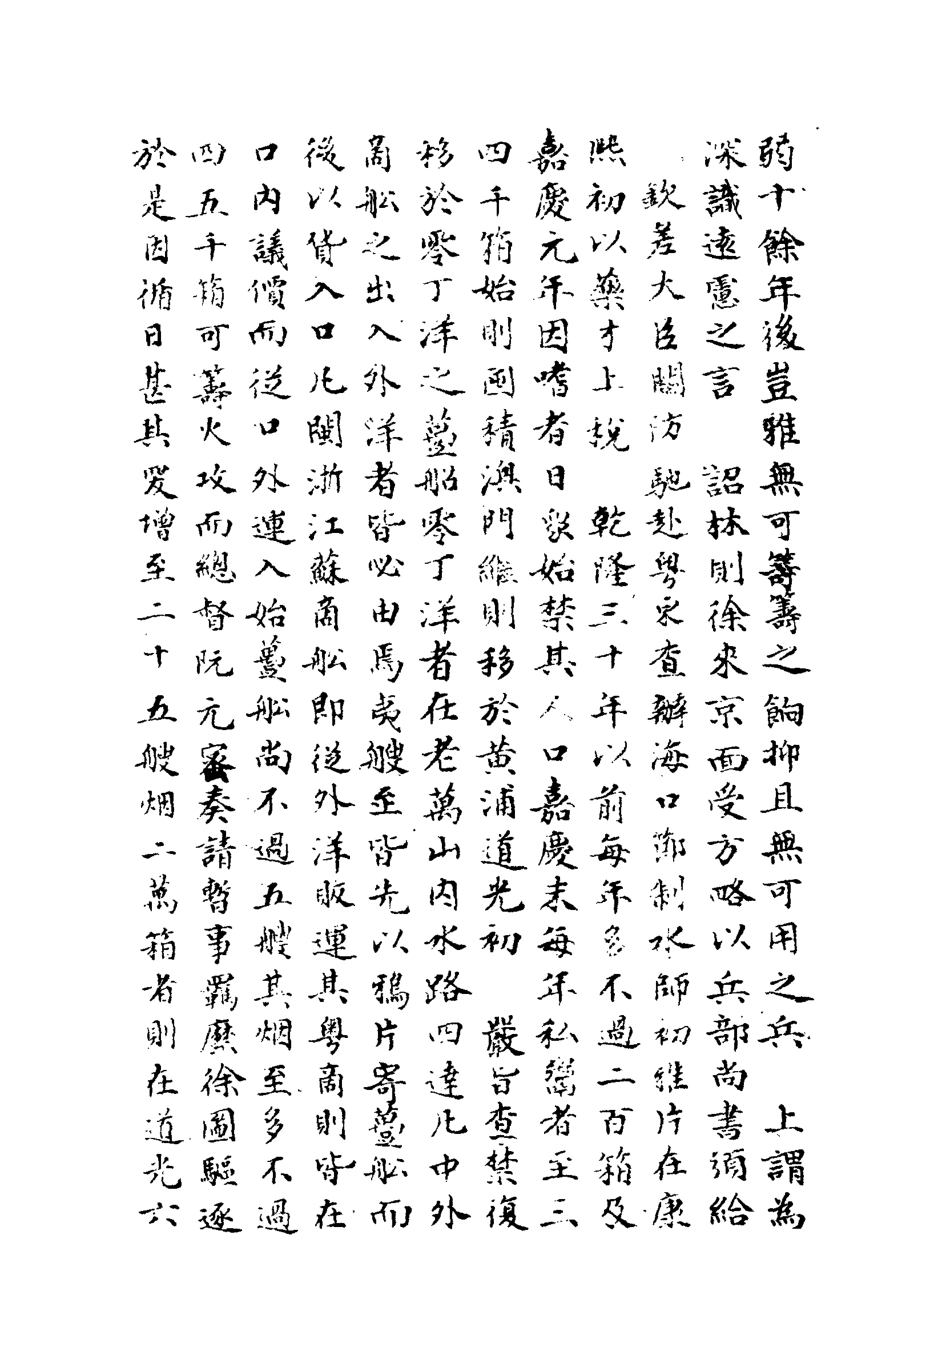 弱十餘年後豈雅無可籌籌之餉抑且無可用之兵　上謂為
深識遠慮之言　詔林則徐來京面受方略以兵部尚書頒給
欽差大臣關防馳赴粵東查辦海口節制水師初雅片在康
熙初以藥才上稅　乾隆三十年以前每年多不過二百箱及
嘉慶元年因嗜者日眾始禁其人口嘉慶末每年私鬻者至三
四千箱始則囤積澳門繼則移於黃浦道光初　嚴旨查禁復
移於零丁洋之躉船零丁洋者在老萬山內水路四達凡中外
商船之出入外洋者皆必由焉夷艘至皆先以鴉片寄躉船而
後以貨入口凡閩浙江蘇商船即從外洋販運其粵商則皆在
口內議價而從口外運入始躉船尚不過五艘其烟至多不過
四五千箱可籌火攻而總督阮元密奏請暫事羈縻徐圖驅逐
於是因循日甚其突增至二十五艘烟二萬箱者則在道光六